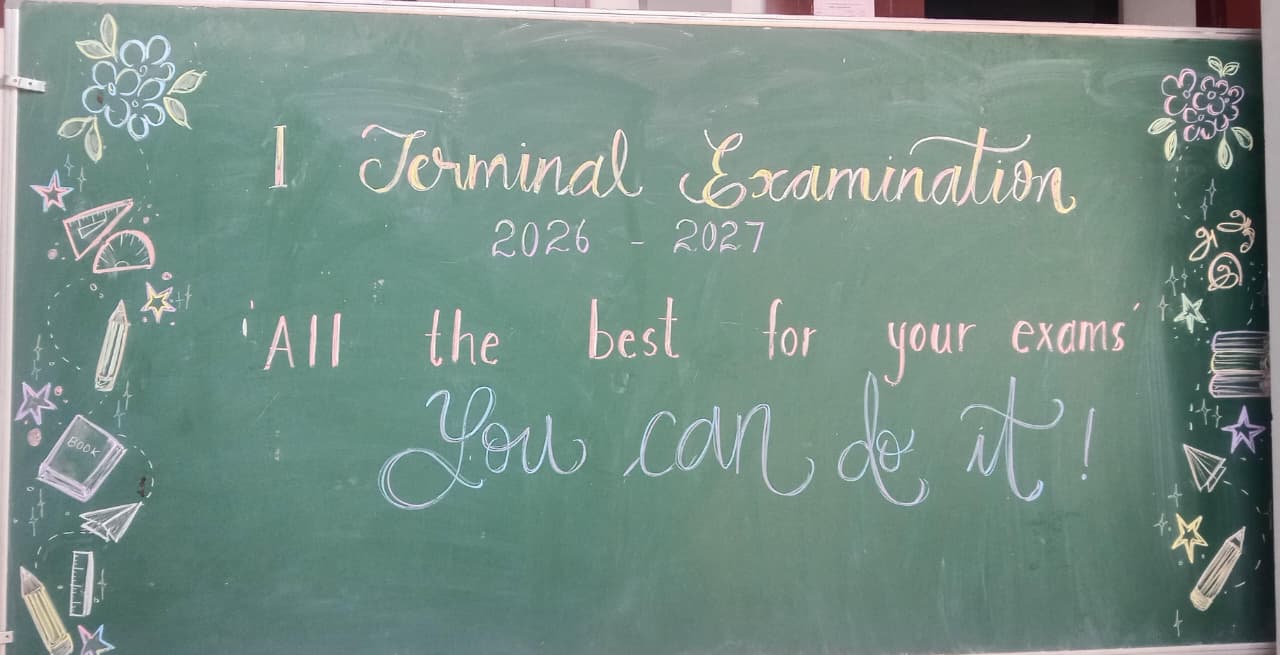 I Terminal Examination
2026 - 2027
'All the best for your exams'
You can do it!
BOOK